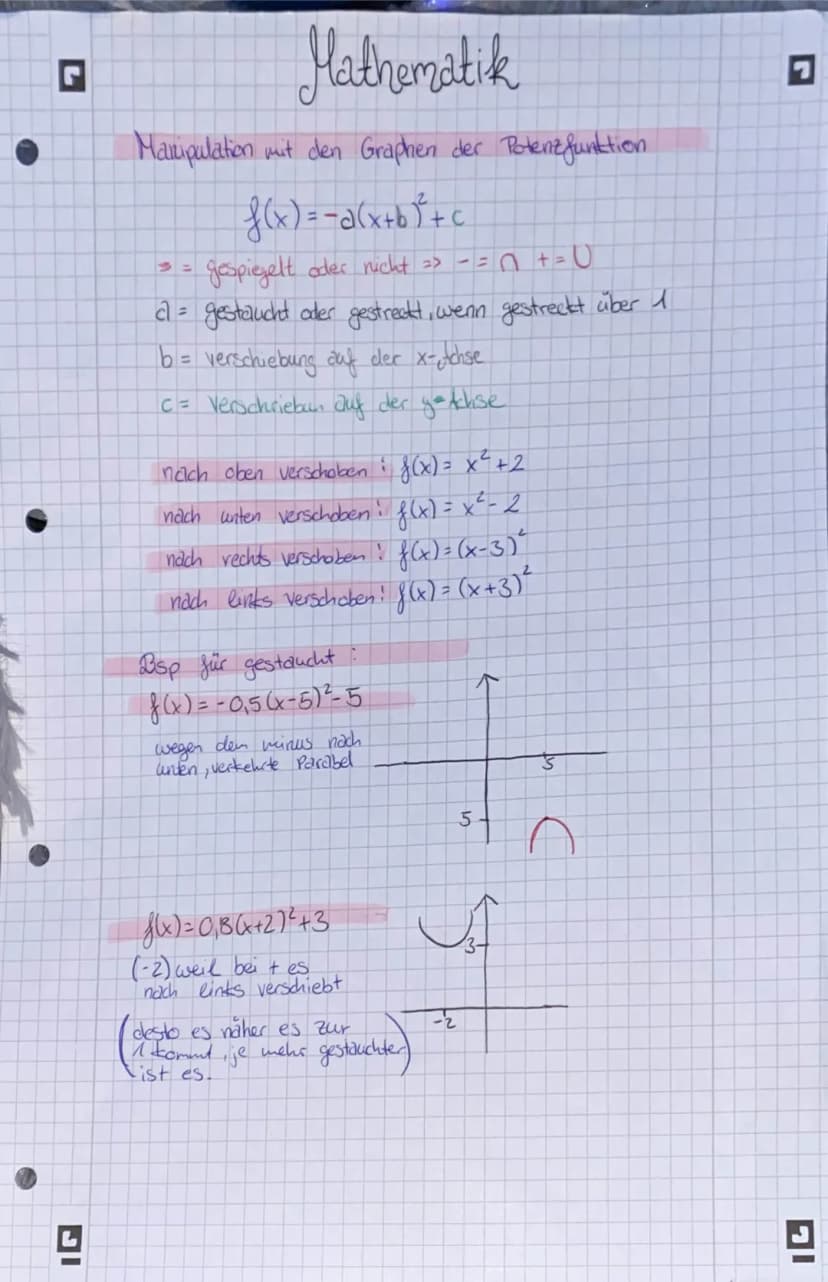 Mathematik
Manipulation mit den Graphen der Potenzfunktion
f(x)=-a(x+b)²+c
- = gespiegelt oder nicht => - = ∩ + = U
a = gestaucht oder gestreckt, wenn gestreckt über 1
b = verschiebung auf der x-Achse
c = Verschriebun auf der y-Achse
nach oben verschoben: f(x) = x²+2
nach unten verschoben: f(x) = x²-2
nach rechts verschoben: f(x)=(x-3)²
nach links verschoben: f(x) = (x+3)²
Bsp für gestaucht:
f(x) = -0,5(x-5)²-5
wegen dem minus nach
unten, verkehrte Parabel
5
5
f(x)=0,8(x+2)²+3
(-2) weil bei + es
nach links verschiebt
(desto es näher es zur
1 kommt, je mehr gestauchter
ist es.)
3
-2